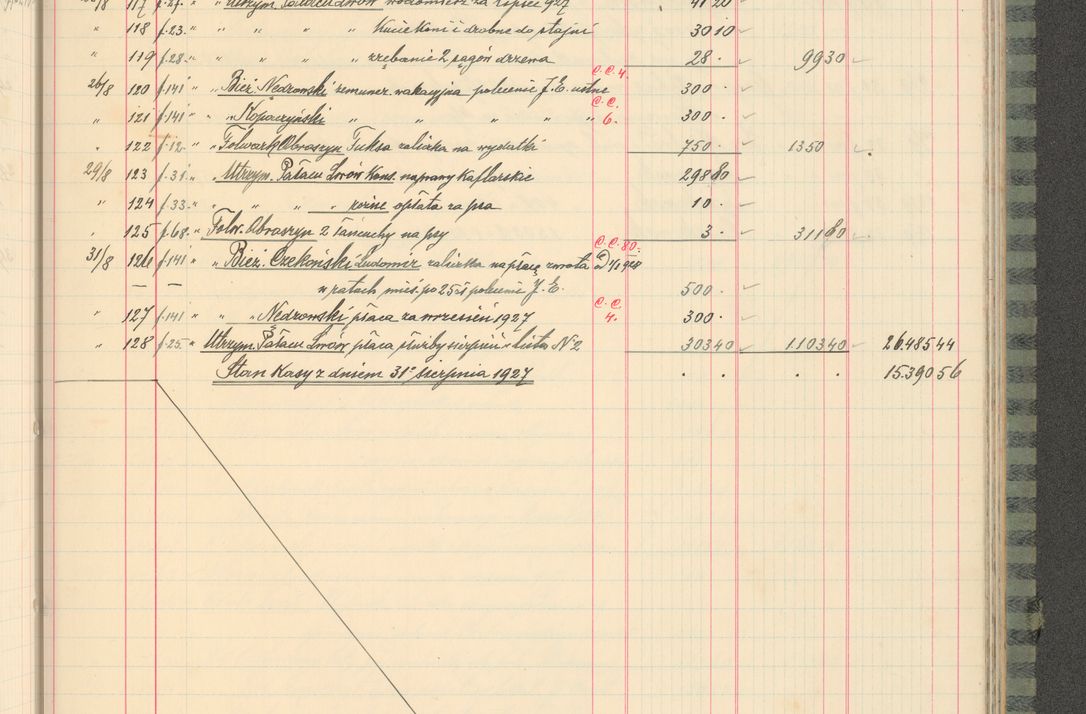 117 f.27. " " Utrzym. Pałacu Lwów wodomierz za lipiec 927 41 20
" 118 f.23. " " " " " Kucie koni i drobne do stajni 30 10
" 119 f.28. " " " " " zrębanie 2 sągów drzewa 28 . 99 30
C.C. 4.
26/8 120 f.141 " " Bież. Nedzowski remuner. wakacyjna polecenie J.E. ustne 300 .
C.C.
" 121 f.141 " " " Kopaczyński " " " " " 6. 300 .
" 122 f.12. " " Folwark Obroszyn Fuksa zaliczka na wydatki 750 . 1350
29/8 123 f.31 " " Utrzym. Pałacu Lwów kons. naprawy kaflarskie 298 80
" 124 f.33. " " " " " różne opłata za psa 10 .
" 125 f.68. " Folw. Obroszyn 2 łańcuchy na psy 3 . 311 80
C.C. 80.
31/8 126 f.141 " " Bież. Czekoński Ludomir zaliczka na płacę zwrota od 1/1 928
— — w ratach mies. po 25 zł polecenie J.E. 500 .
C.C.
" 127 f.141 " " " Nedzowski płaca za wrzesień 1927 4. 300 .
" 128 f.25. " Utrzym. Pałacu Lwów płaca służby sierpień lista N 2 303 40 1103 40 26.485 44
Stan Kasy z dniem 31o sierpnia 1927 . . . . 15.390 56